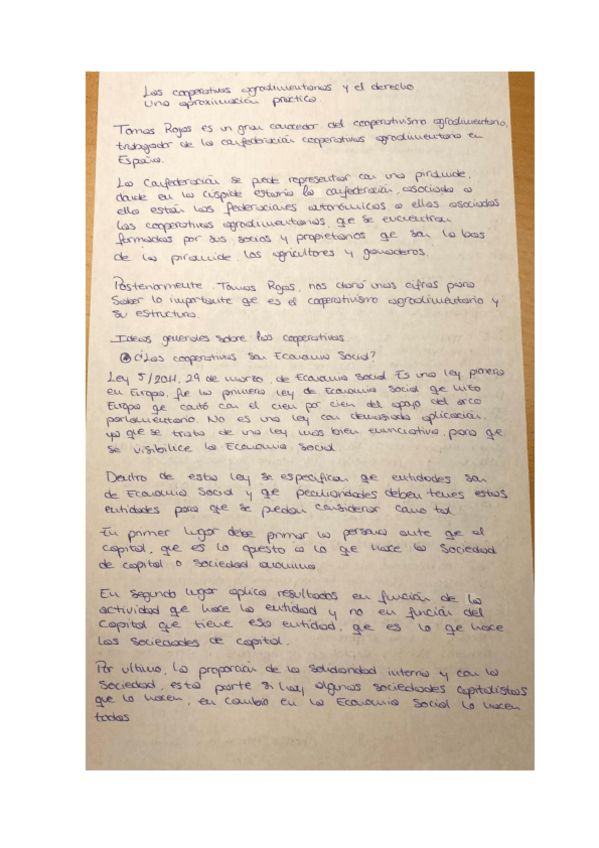 Las cooperativas agroalimentarias y el derecho
una aproximación práctica.
Tomas Rojas es un gran conocedor del cooperativismo agroalimentario,
trabajador de la confederación cooperativas agroalimentaria en
España.
La Confederación se puede representar con una pirámide,
donde en la cúspide estaría la confederación, asociada a
ella están las federaciones autonómicas a ellas asociadas
las cooperativas agroalimentarias, que se encuentran
formadas por sus socios y propietarios qe son la base
de la pirámide, los agricultores y ganaderos.
Posteriormente, Tomas Rojas, nos daría unas cifras para
saber lo importante qe es el cooperativismo agroalimentario y
su estructura.
Ideas generales sobre las cooperativas.
¿Las cooperativas son Economia Social?
Ley 5/2011, 29 de marzo, de Economia Social. Es una ley pionera
en Europa, fue la primera ley de Economia Social qe hizo
Europa qe contó con el cien por cien del apoyo del arco
parlamentario. No es una ley con demasiada aplicación,
ya que se trata de una ley mas bien enunciativa, para qe
se visibilice la Economia Social.
Dentro de esta ley se especifican qe entidades son
de Economia Social y qe peculiaridades deben tener estas
entidades para que se puedan considerar como tal.
En primer lugar debe primar la persona ante qe al
capital, que es lo opuesto a lo qe hace la Sociedad
de capital o Sociedad anónima.
En segundo lugar aplica resultados en función de la
actividad qe hace la entidad y no en función del
Capital que tiene esa entidad, qe es lo qe hace
las sociedades de capital.
Por ultimo, la proporción de la solidaridad interna y con la
Sociedad, esta parte si hay algunas sociedades capitalistas
que lo hacen, en cambio en la Economia Social lo hacen
todas